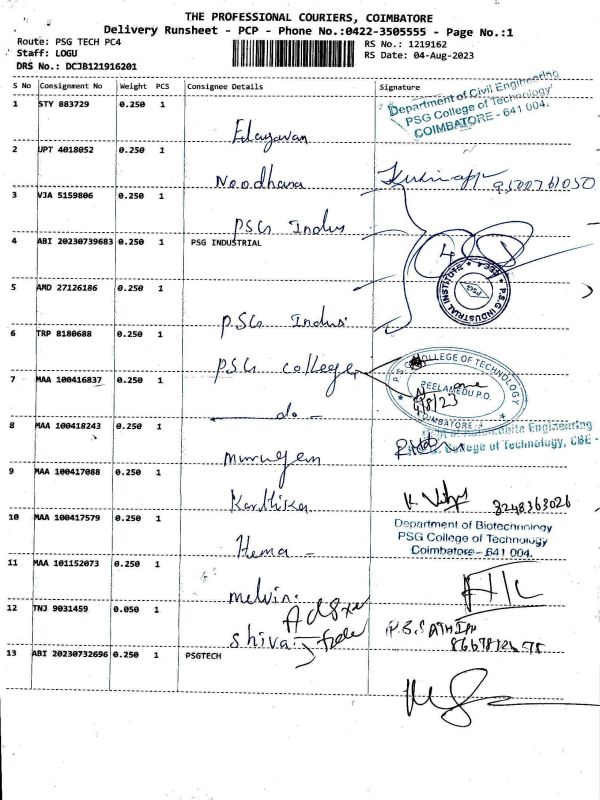 THE PROFESSIONAL COURIERS, COIMBATORE
Delivery Runsheet - PCP - Phone No.:0422-3505555 - Page No.:1
Route: PSG TECH PC4
RS No.: 1219162
Staff: LOGU
RS Date: 04-Aug-2023
DRS No.: DCJB121916201
S No Consignment No Weight PCS Consignee Details Signature
1 STY 883729 0.250 1
Department of Civil Engineering
PSG College of Technology
COIMBATORE - 641 004.
Elayavan
2 UPT 4018052 0.250 1
Noodhana
9500761050
3 VJA 5159806 0.250 1
PSG Indus
4 ABI 20230739683 0.250 1 PSG INDUSTRIAL
P.S.G INDUSTRIAL INSTITUTE
PSG
5 AMD 27126186 0.250 1
PSG Indus.
6 TRP 8180688 0.250 1
PSG college
P.S.G COLLEGE OF TECHNOLOGY
PEELAMEDU P.O.
4/8/23
COIMBATORE-4
7 MAA 100416837 0.250 1
do -
8 MAA 100418243 0.250 1
Engineering
College of Technology, CBE -
Murugem
9 MAA 100417088 0.250 1
Karthika
8248363026
10 MAA 100417579 0.250 1
Department of Biotechnology
PSG College of Technology
Coimbatore - 641 004.
Hema -
11 MAA 101152073 0.250 1
melvin.
12 TNJ 9031459 0.050 1
shiva
13 ABI 20230732696 0.250 1 PSGTECH